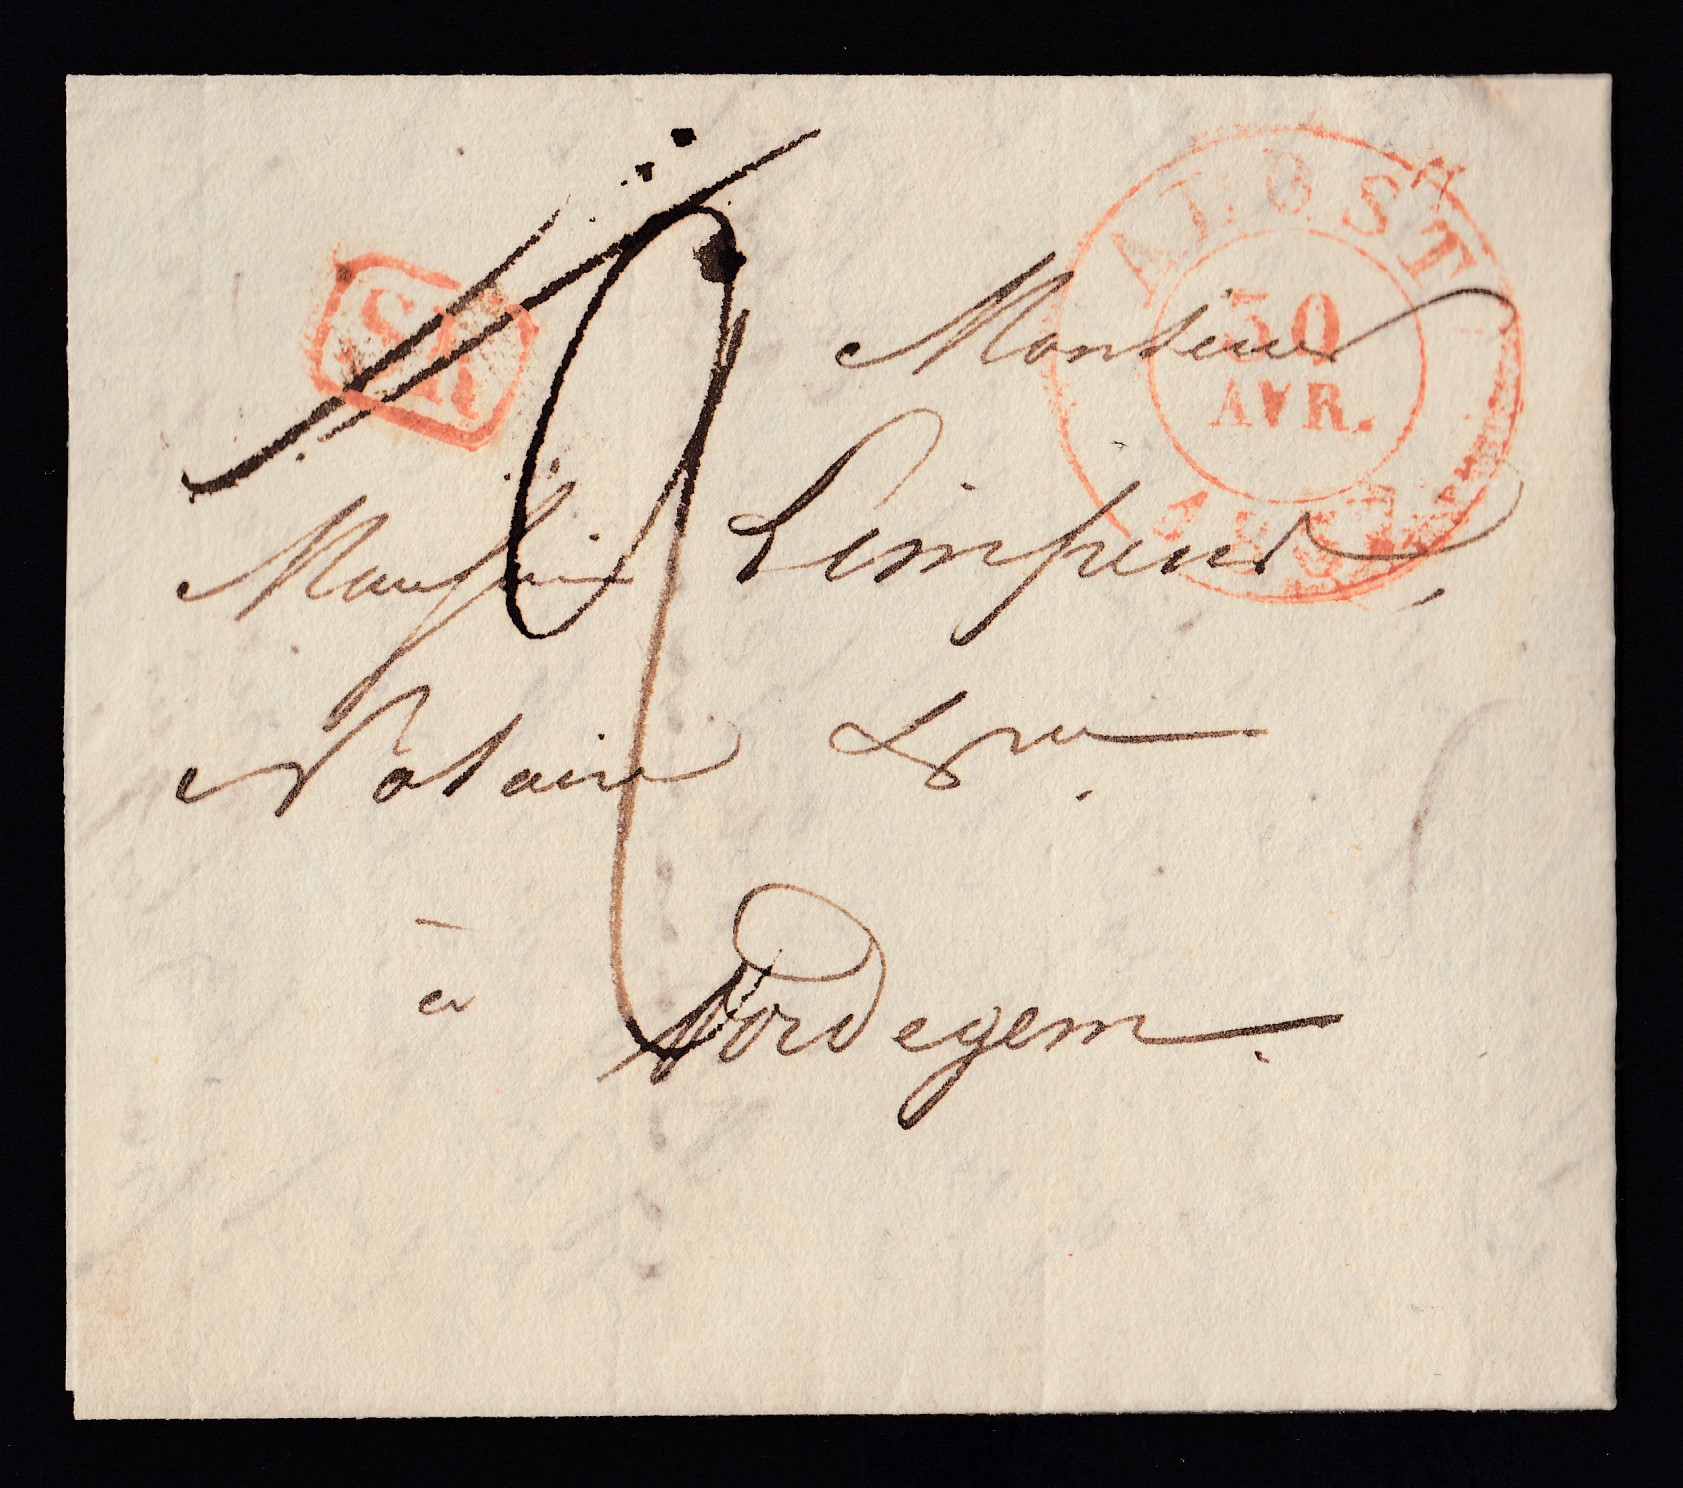 ALOST
30
AVR.
SR
Monsieur
Monsieur Limpens,
Notaire &
à Nordegem.